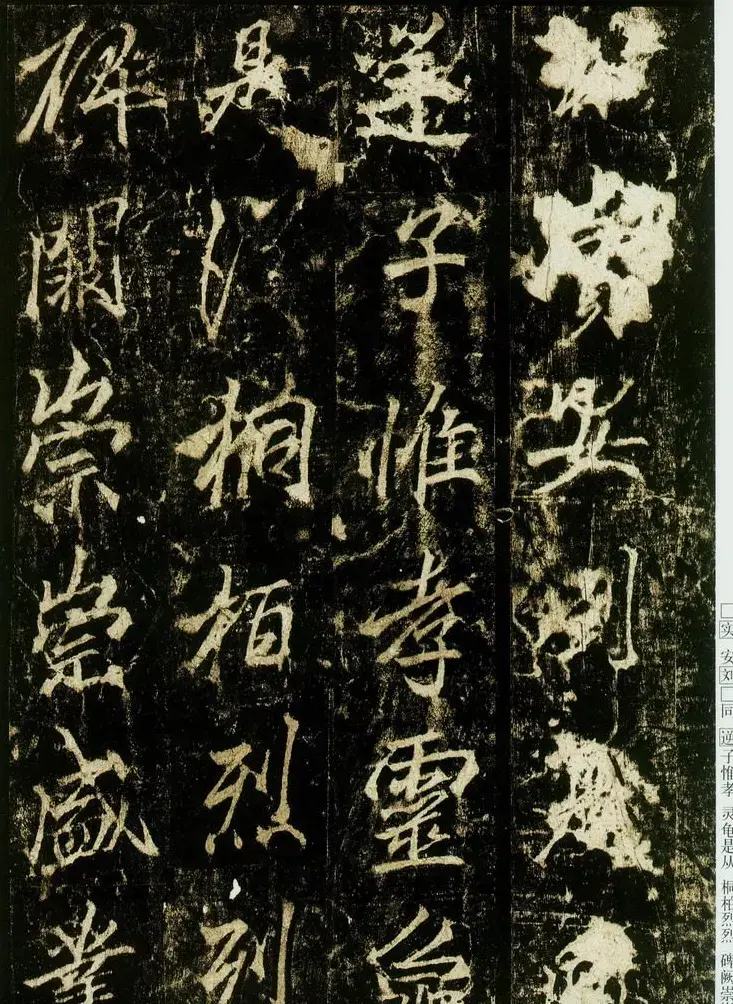 實晏
逆子惟孝靈龜
是從桐柏烈烈
碑闕崇崇盛業
实 安刘 同 逆子惟孝 灵龟是从 桐柏烈烈 碑阙崇